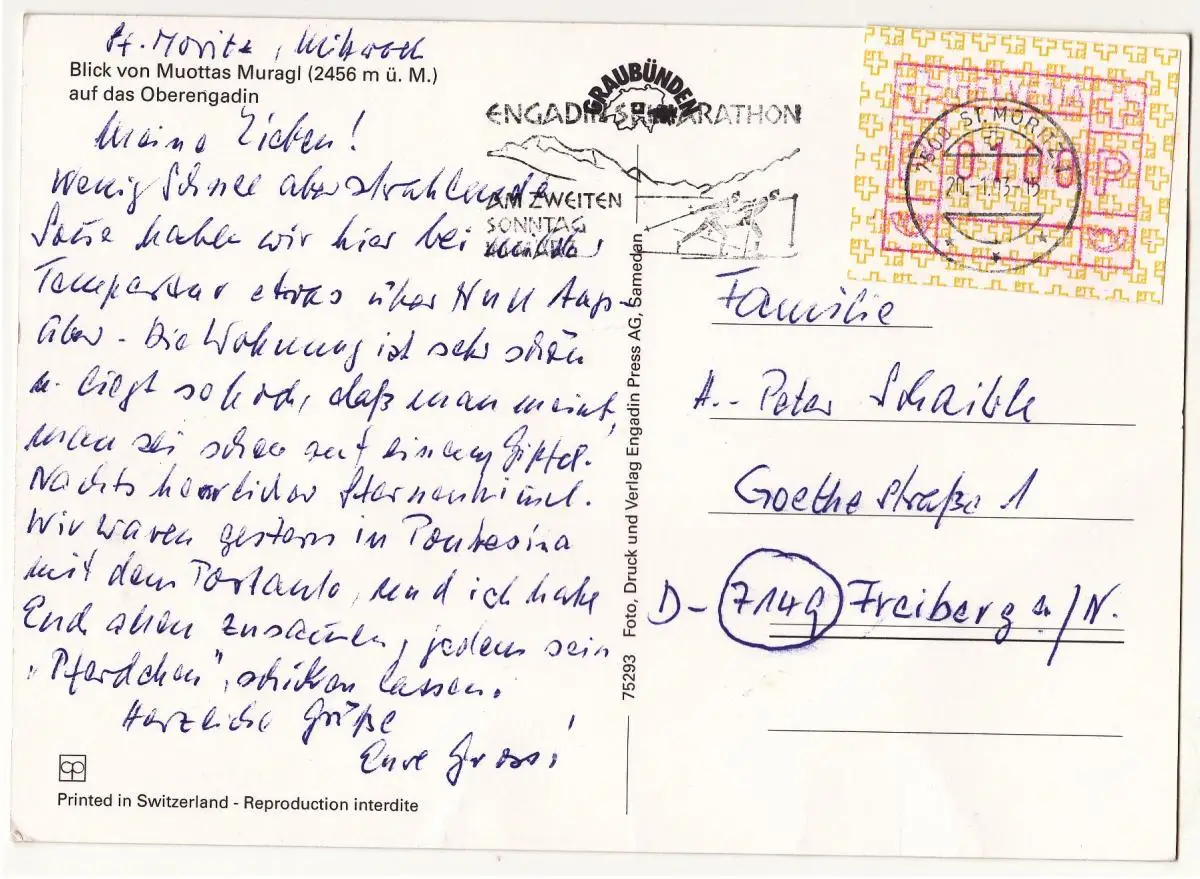 St. Moritz, Mittwoch
Blick von Muottas Muragl (2456 m ü. M.)
auf das Oberengadin
Meine Lieben!
Wenig Schnee aber strahlende
Sonne haben wir hier bei
Temperatur etwas über Null tags-
über. Die Wohnung ist sehr schön
u. liegt so hoch, daß man meint,
man sei schon auf einem Gipfel.
Nachts herrlicher Sternenhimmel.
Wir waren gestern in Pontresina
mit dem Postauto, und ich habe
Euch allen zusammen, jedem sein
"Pferdchen", schicken lassen.
Herzliche Grüße
Eure
Printed in Switzerland - Reproduction interdite
75293 Foto, Druck und Verlag Engadin Press AG, Samedan
GRAUBÜNDEN
ENGADIN SKIMARATHON
AM ZWEITEN
SONNTAG
HELVETIA
0100 P
7500 ST. MORITZ 1
20.-1.93-15
Familie
H.-Peter Schaible
Goethestraße 1
D-7149 Freiberg a/N.